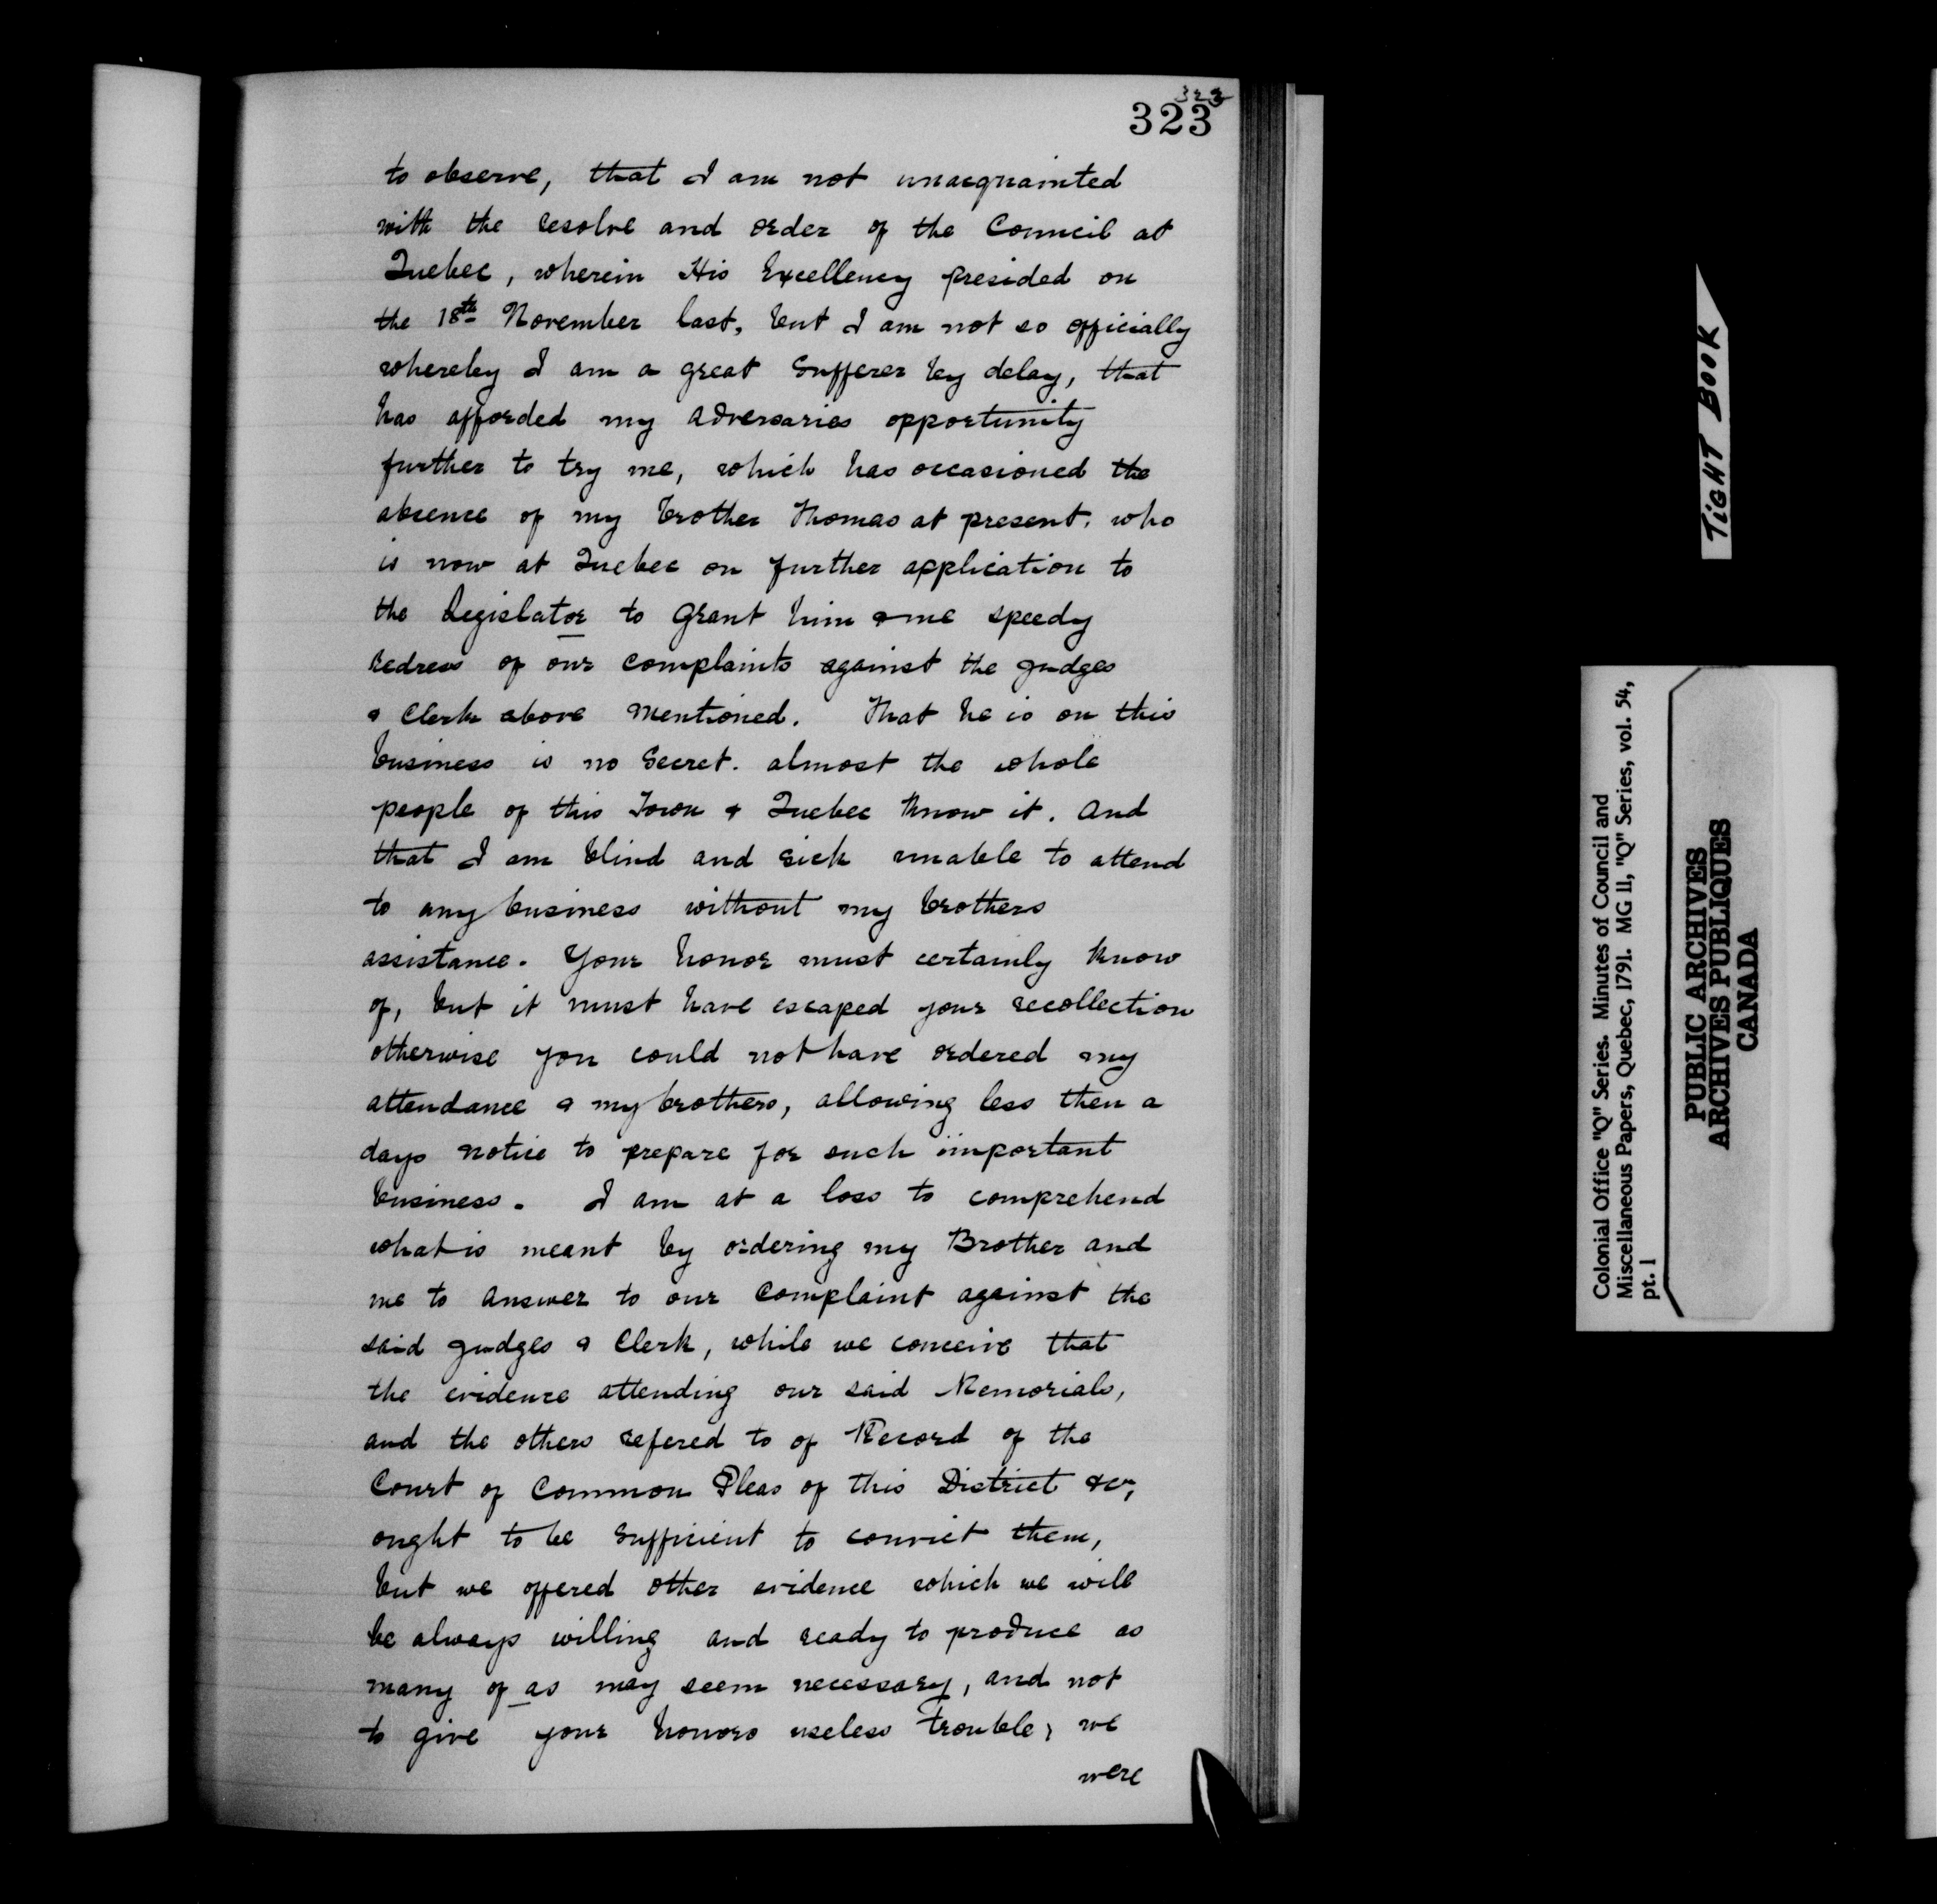 323
323
to observe, that I am not unacquainted
with the resolve and order of the Council at
Quebec, wherein His Excellency presided on
the 18th November last, but I am not so officially
whereby I am a great Sufferer by delay, that
has afforded my adversaries opportunity
further to try me, which has occasioned the
absence of my brother Thomas at present, who
is now at Quebec on further application to
the Legislator to grant him & me speedy
redress of our complaints against the judges
& Clerk above mentioned. That he is on this
business is no Secret. almost the whole
people of this Town & Quebec know it. And
that I am blind and sick unable to attend
to any business without my brothers
assistance. Your honor must certainly know
of, but it must have escaped your recollection
otherwise you could not have ordered my
attendance & my brothers, allowing less then a
days notice to prepare for such important
business. I am at a loss to comprehend
what is meant by ordering my Brother and
me to answer to our Complaint against the
said judges & Clerk, while we conceive that
the evidence attending our said Memorials,
and the others refered to of Record of the
Court of Common Pleas of this District &c,
ought to be sufficient to convict them,
but we offered other evidence which we will
be always willing and ready to produce as
many of as may seem necessary, and not
to give your honors useless trouble, we
were
TIGHT BOOK
Colonial Office "Q" Series. Minutes of Council and
Miscellaneous Papers, Quebec, 1791. MG 11, "Q" Series, vol. 54,
pt. 1
PUBLIC ARCHIVES
ARCHIVES PUBLIQUES
CANADA